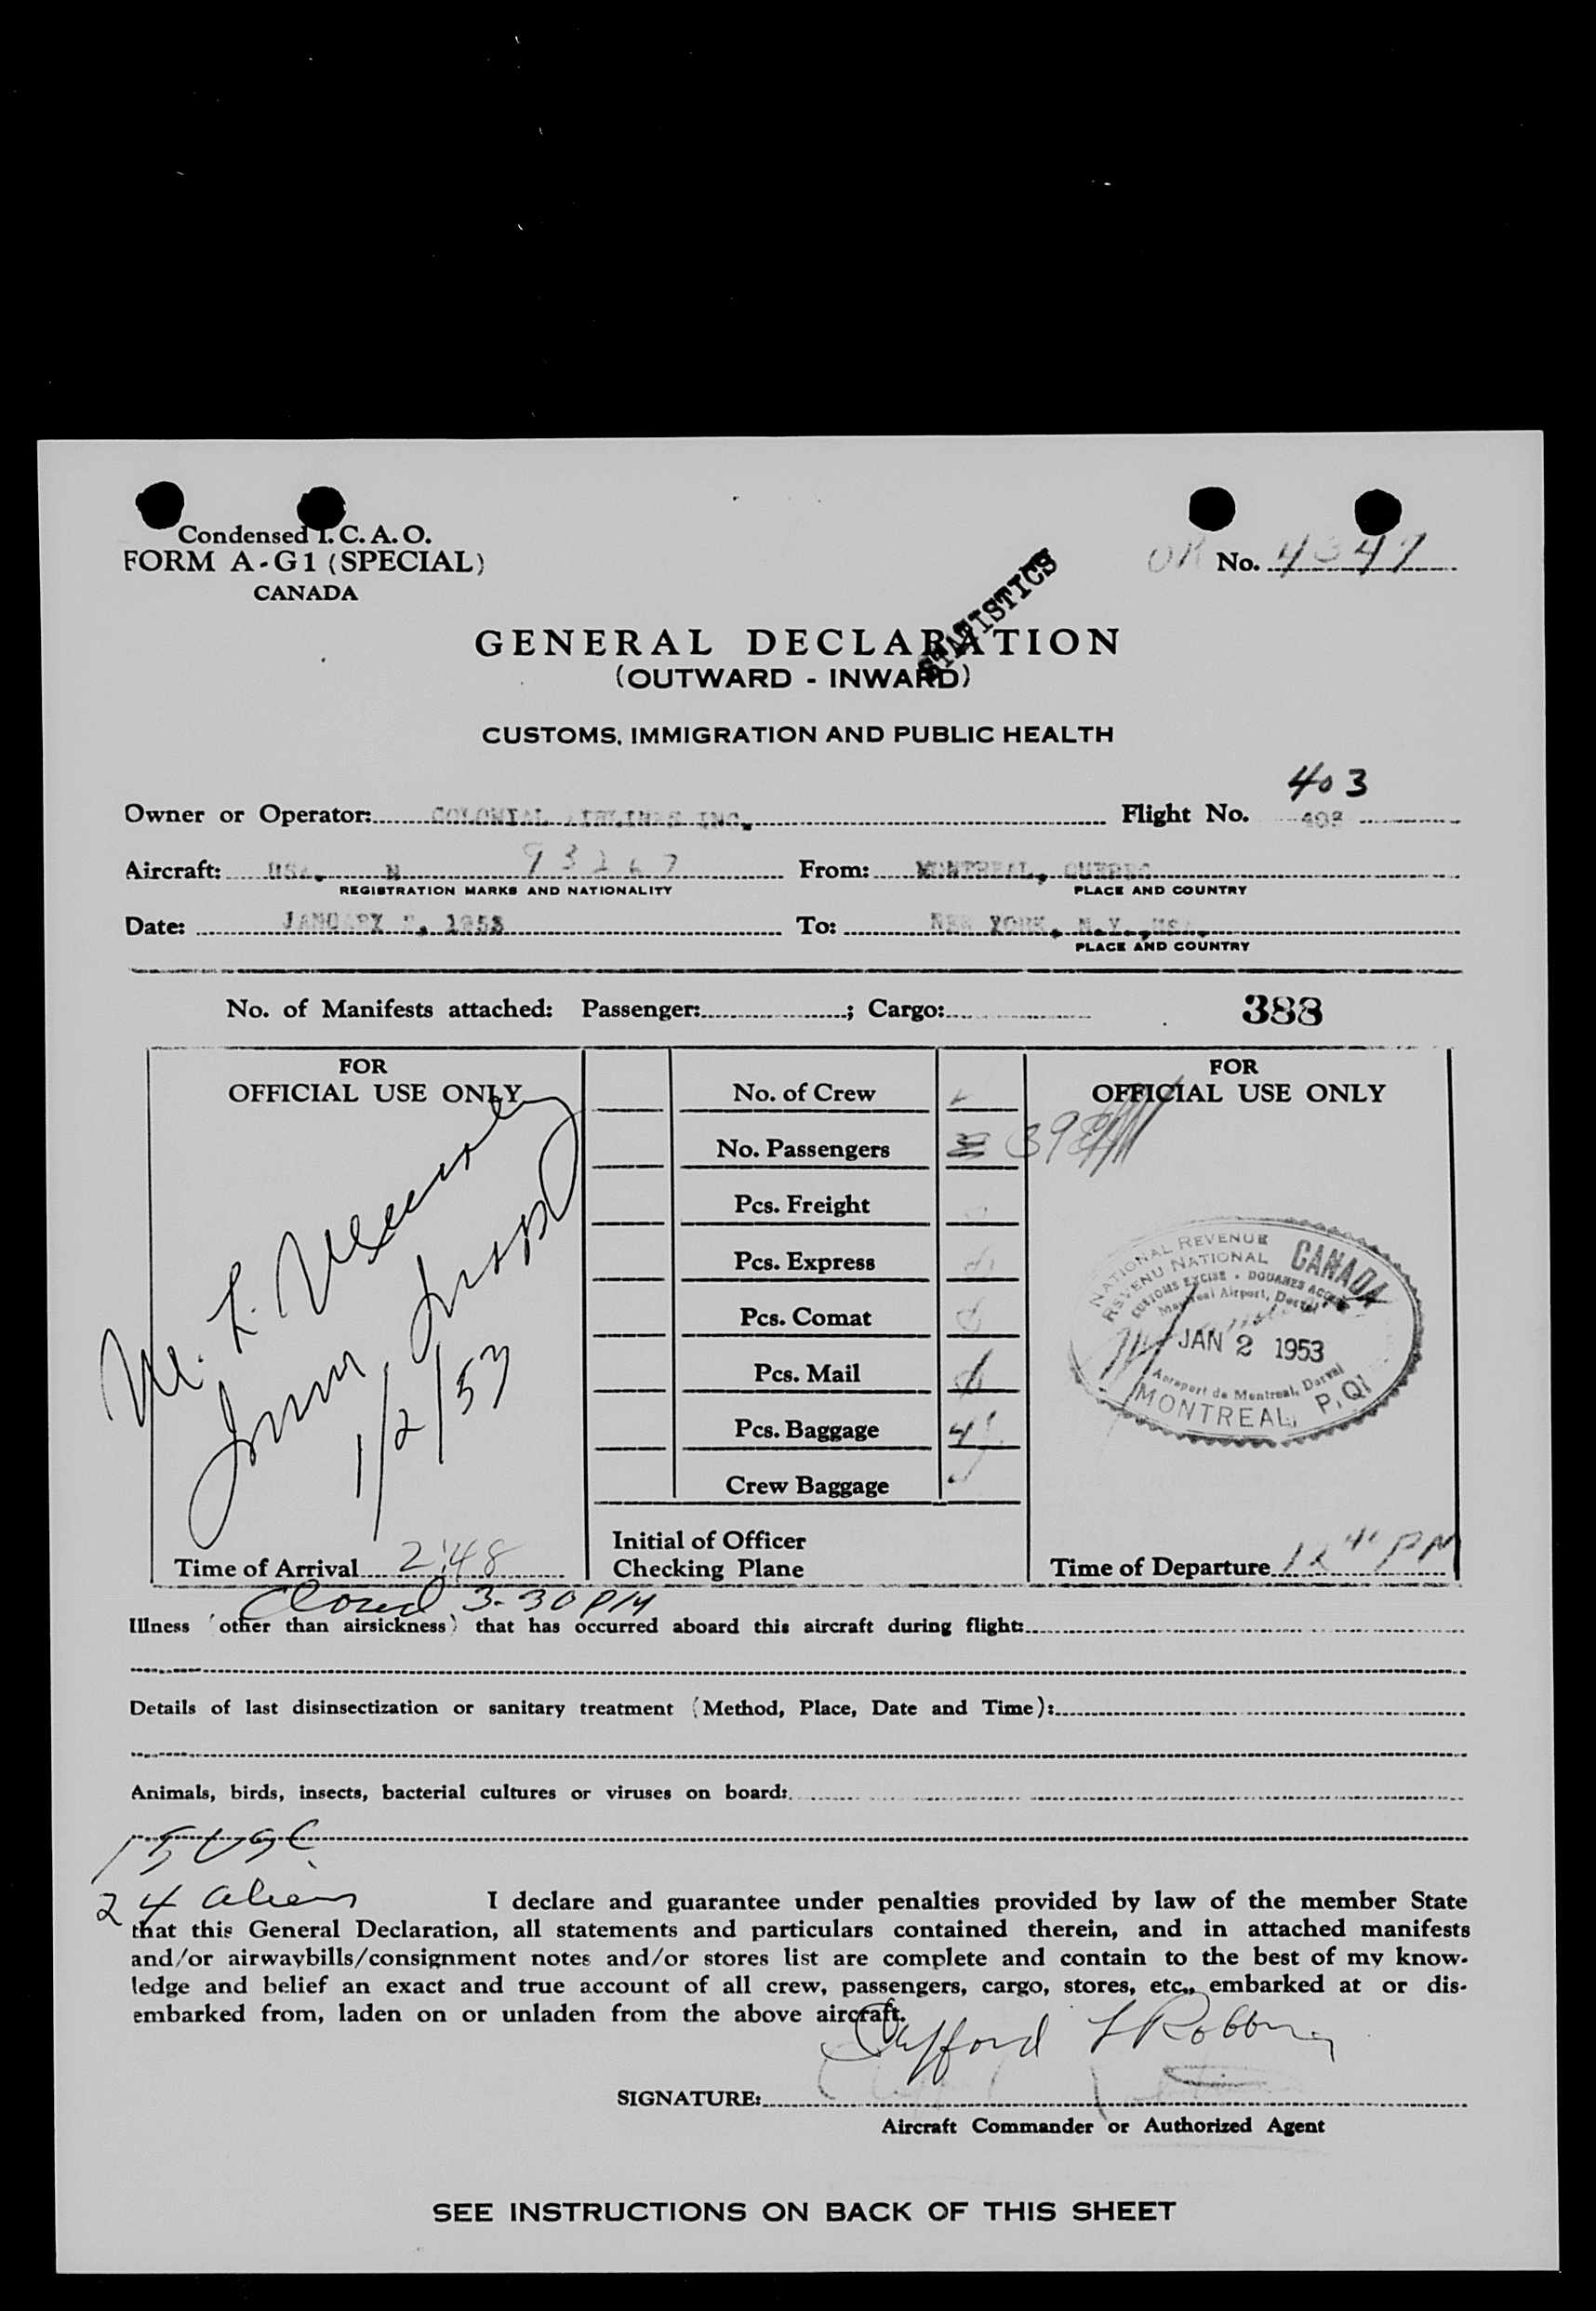 Condensed I. C. A. O.
FORM A-G1 (SPECIAL)
CANADA
No. 4347
STATISTICS
GENERAL DECLARATION
(OUTWARD - INWARD)
CUSTOMS, IMMIGRATION AND PUBLIC HEALTH
403
Owner or Operator: COLONIAL AIRLINES INC. Flight No. 403
Aircraft: USA. N 93167 From: MONTREAL, QUEBEC
REGISTRATION MARKS AND NATIONALITY PLACE AND COUNTRY
Date: JANUARY 2, 1953 To: NEW YORK, N.Y.,USA.
PLACE AND COUNTRY
No. of Manifests attached: Passenger: ; Cargo: 388
FOR
OFFICIAL USE ONLY
M. L.
Imm Insp
1/2/53
Time of Arrival 2:48
No. of Crew
No. Passengers 39
Pcs. Freight
Pcs. Express
Pcs. Comat
Pcs. Mail
Pcs. Baggage
Crew Baggage
Initial of Officer
Checking Plane
FOR
OFFICIAL USE ONLY
NATIONAL REVENUE
REVENU NATIONAL
CANADA
CUSTOMS EXCISE - DOUANES ACCISE
Montreal Airport, Dorval
JAN 2 1953
Aeroport de Montreal, Dorval
MONTREAL, P.Q.
Time of Departure 12 41 PM
Closed 3-30 PM
Illness (other than airsickness) that has occurred aboard this aircraft during flight:
Details of last disinsectization or sanitary treatment (Method, Place, Date and Time):
Animals, birds, insects, bacterial cultures or viruses on board:
15 USC
24 aliens
I declare and guarantee under penalties provided by law of the member State
that this General Declaration, all statements and particulars contained therein, and in attached manifests
and/or airwaybills/consignment notes and/or stores list are complete and contain to the best of my know-
ledge and belief an exact and true account of all crew, passengers, cargo, stores, etc., embarked at or dis-
embarked from, laden on or unladen from the above aircraft.
SIGNATURE:
Aircraft Commander or Authorized Agent
SEE INSTRUCTIONS ON BACK OF THIS SHEET